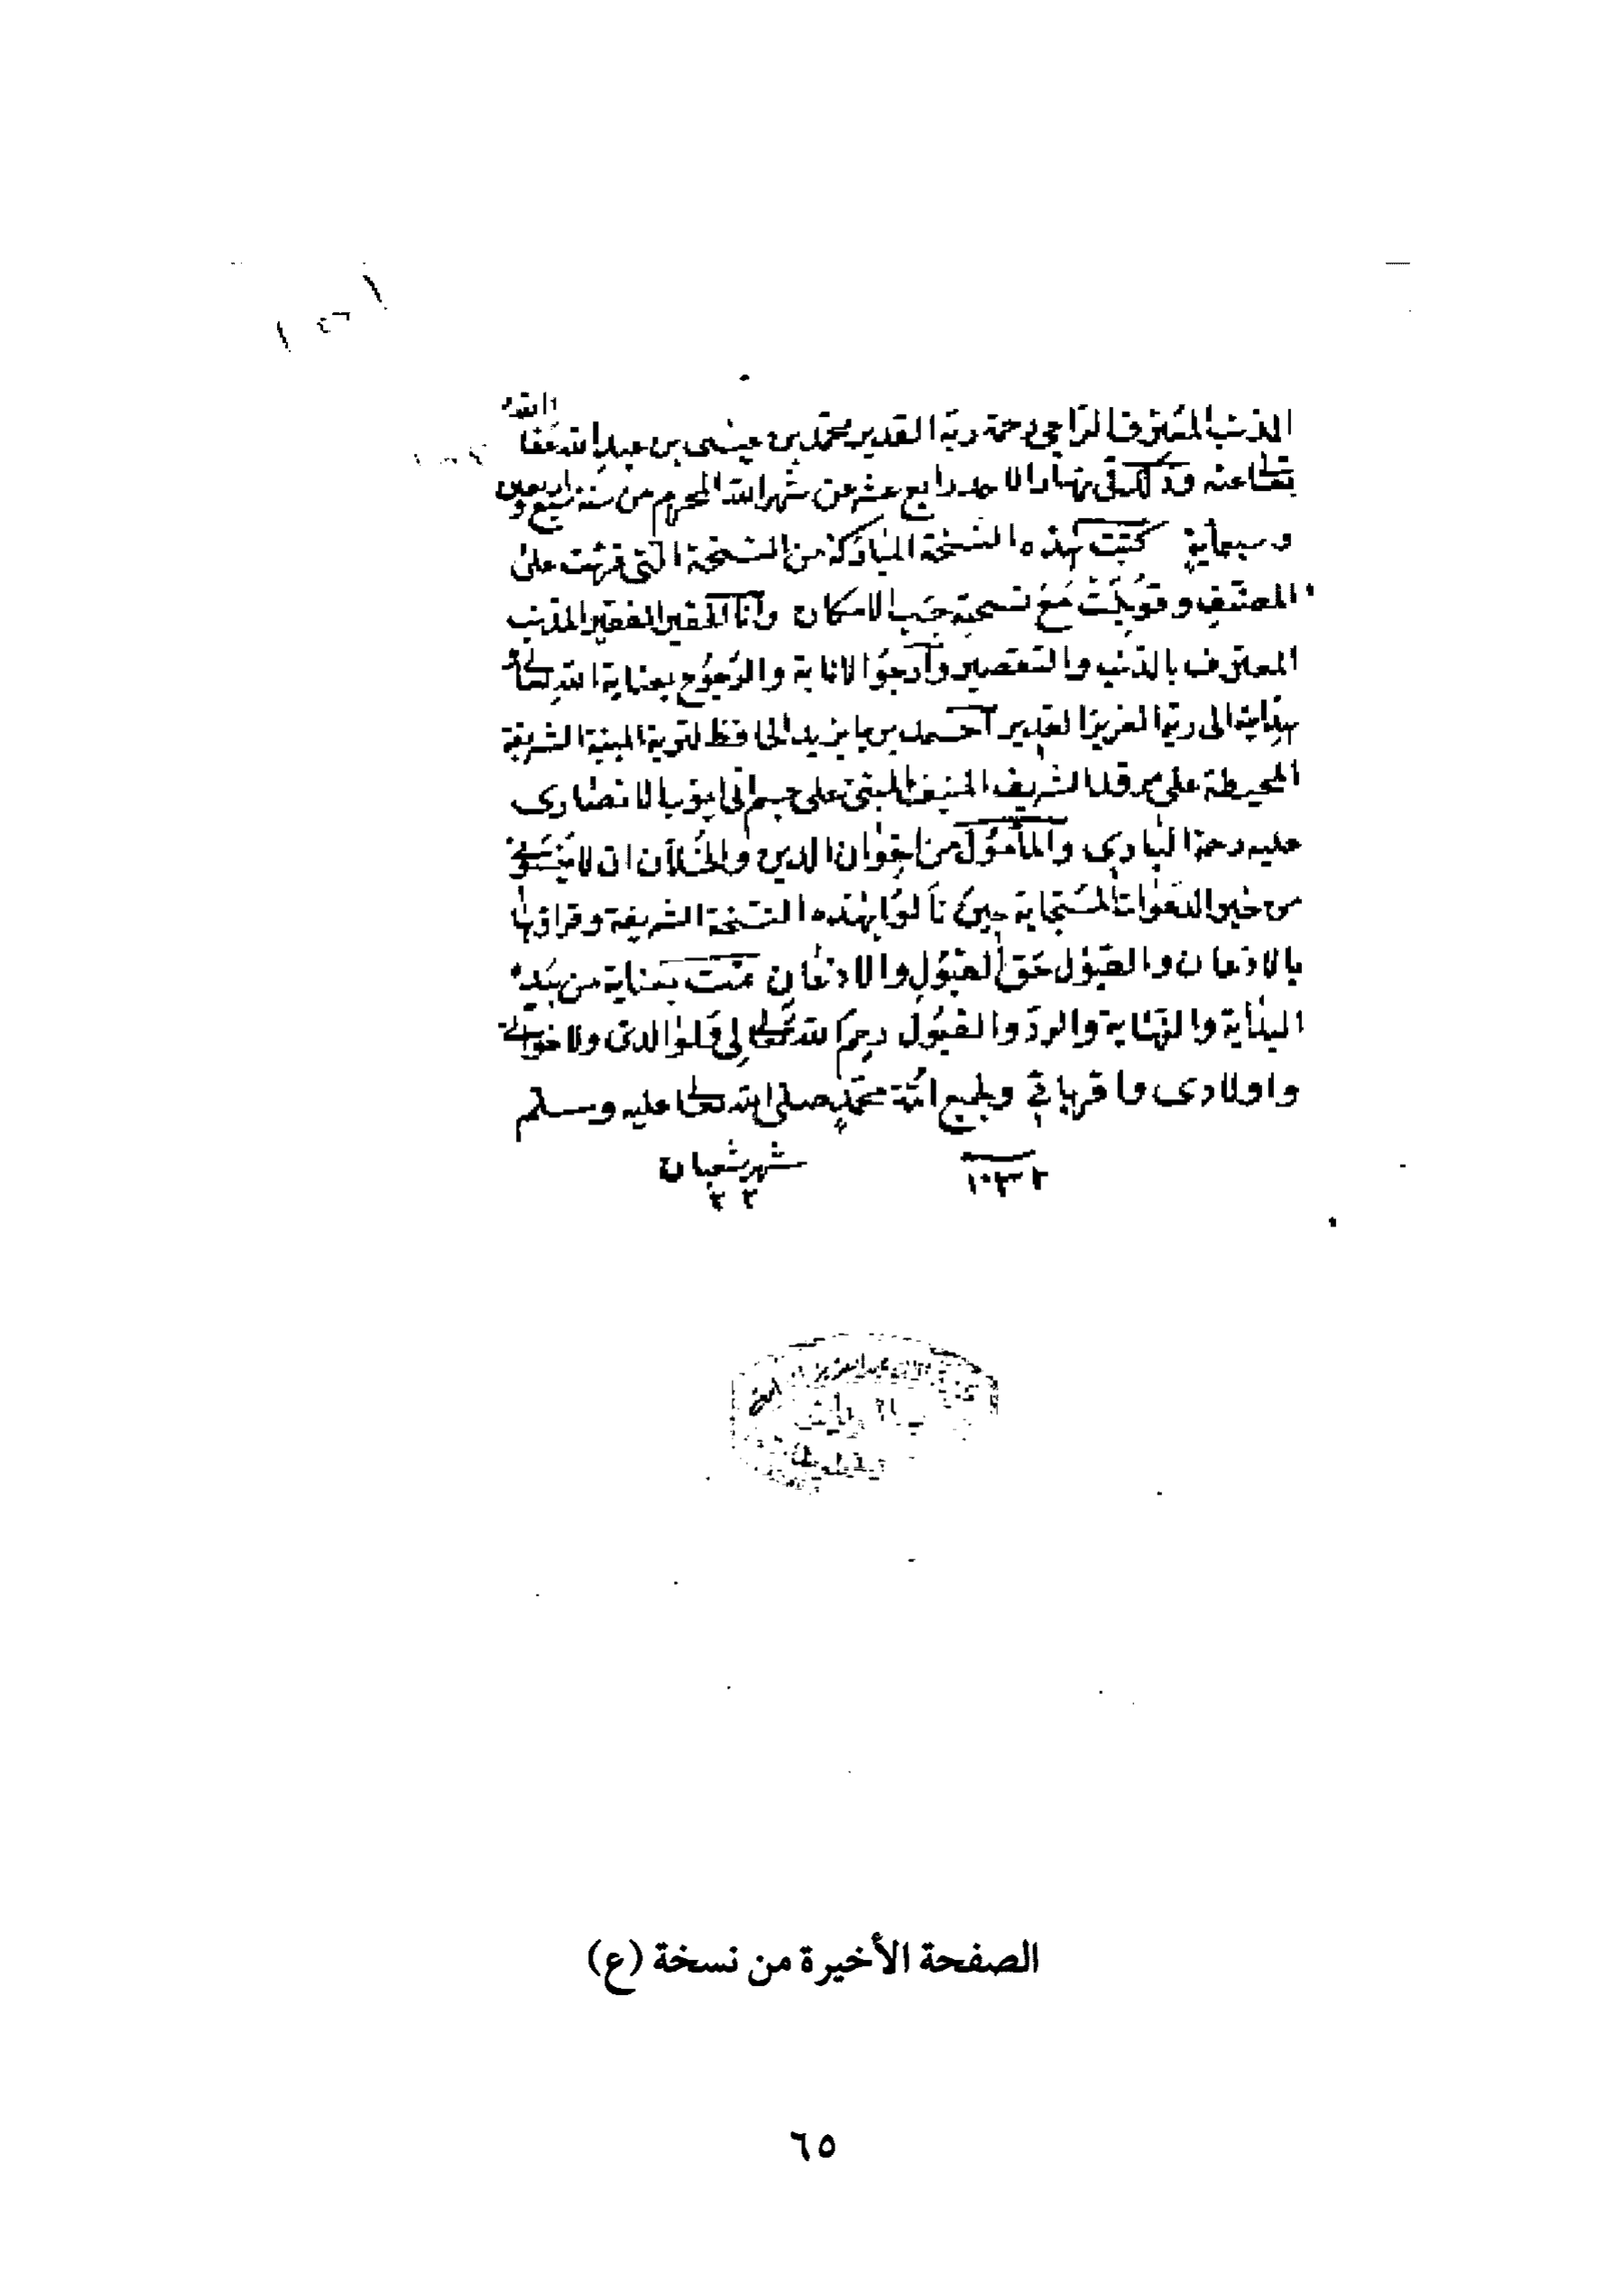 المذنب المعترف الراجي رحمة ربه القدير محمد بن عيسى بن عبد الله عفا الله
تعالى عنه وذلك في نهار الاحد رابع عشر من شهر الله المحرم من سنة سبع واربعين
وسبعماية كتبت هذه النسخة المباركة من النسخة التي قرئت على
المصنف وقوبلت مع نسخته حسب الامكان وانا الحقير الفقير المذنب
المعترف بالذنب والتقصير وارجو الانابة والرجوع بعناية الله تعالى
بهدايته الى ربه العزيز القدير احمد بن بايزيد الحافظ لتربة المبنية الشريفة
المحيطة على مرقد الشريف المنيف المبني على جسم ابي ايوب الانصاري
عليه رحمة الباري والمأمول من اخوان الدين والخلان ان لا
من خير الدعوات المستجابة حين نالوا بهذه النسخة الشريفة وقراؤها
بالاذعان والقبول حق القبول والاذعان تمت بعناية من بيده
البداية والنهاية والرد والقبول رحم الله تعالى لي ولوالدي ولاخواني
واولادي واقربائي ولجميع امة محمد صلى الله تعالى عليه وسلم
شهر شعبان
الصفحة الأخيرة من نسخة (ع)
٦٥